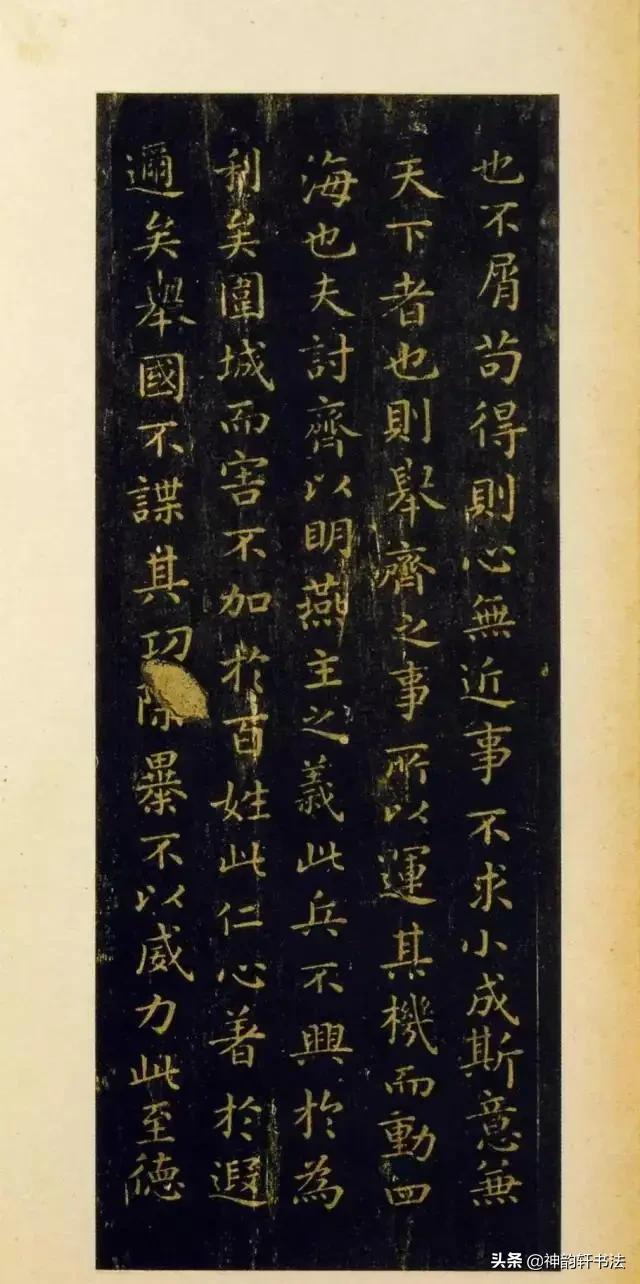 也不屑苟得則心無近事不求小成斯意兼
天下者也則舉齊之事所以運其機而動四
海也夫討齊以明燕主之義此兵不興於為
利矣圍城而害不加於百姓此仁心著於遐
邇矣舉國不謀其功除暴不以威力此至德
头条 @神韵轩书法